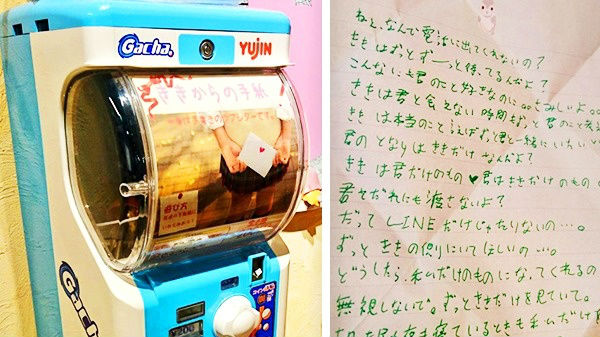 Gacha.
YUJIN
ききからの手紙
Gacha
¥200
ねぇ、なんで電話に出てくれないの?
ききはずっとず〜っと待ってるんだよ?
こんなにも君のこと好きなのに。。さみしいよ。。
ききは君と会えない時間もずっと君のこと
ききは本当のこと言えばずっと君と一緒にいたい
君のとなりはききだけなんだよ?
ききは君だけのもの♥君はききだけのもの
君をだれにも渡さないよ?
だってLINEだけじゃたりないの…。
ずっとききの側にいてほしいの…。
どうしたら、私だけのものになってくれるの
無視しないで。ずっとききだけを見ていて。
寝ているときも私だけ